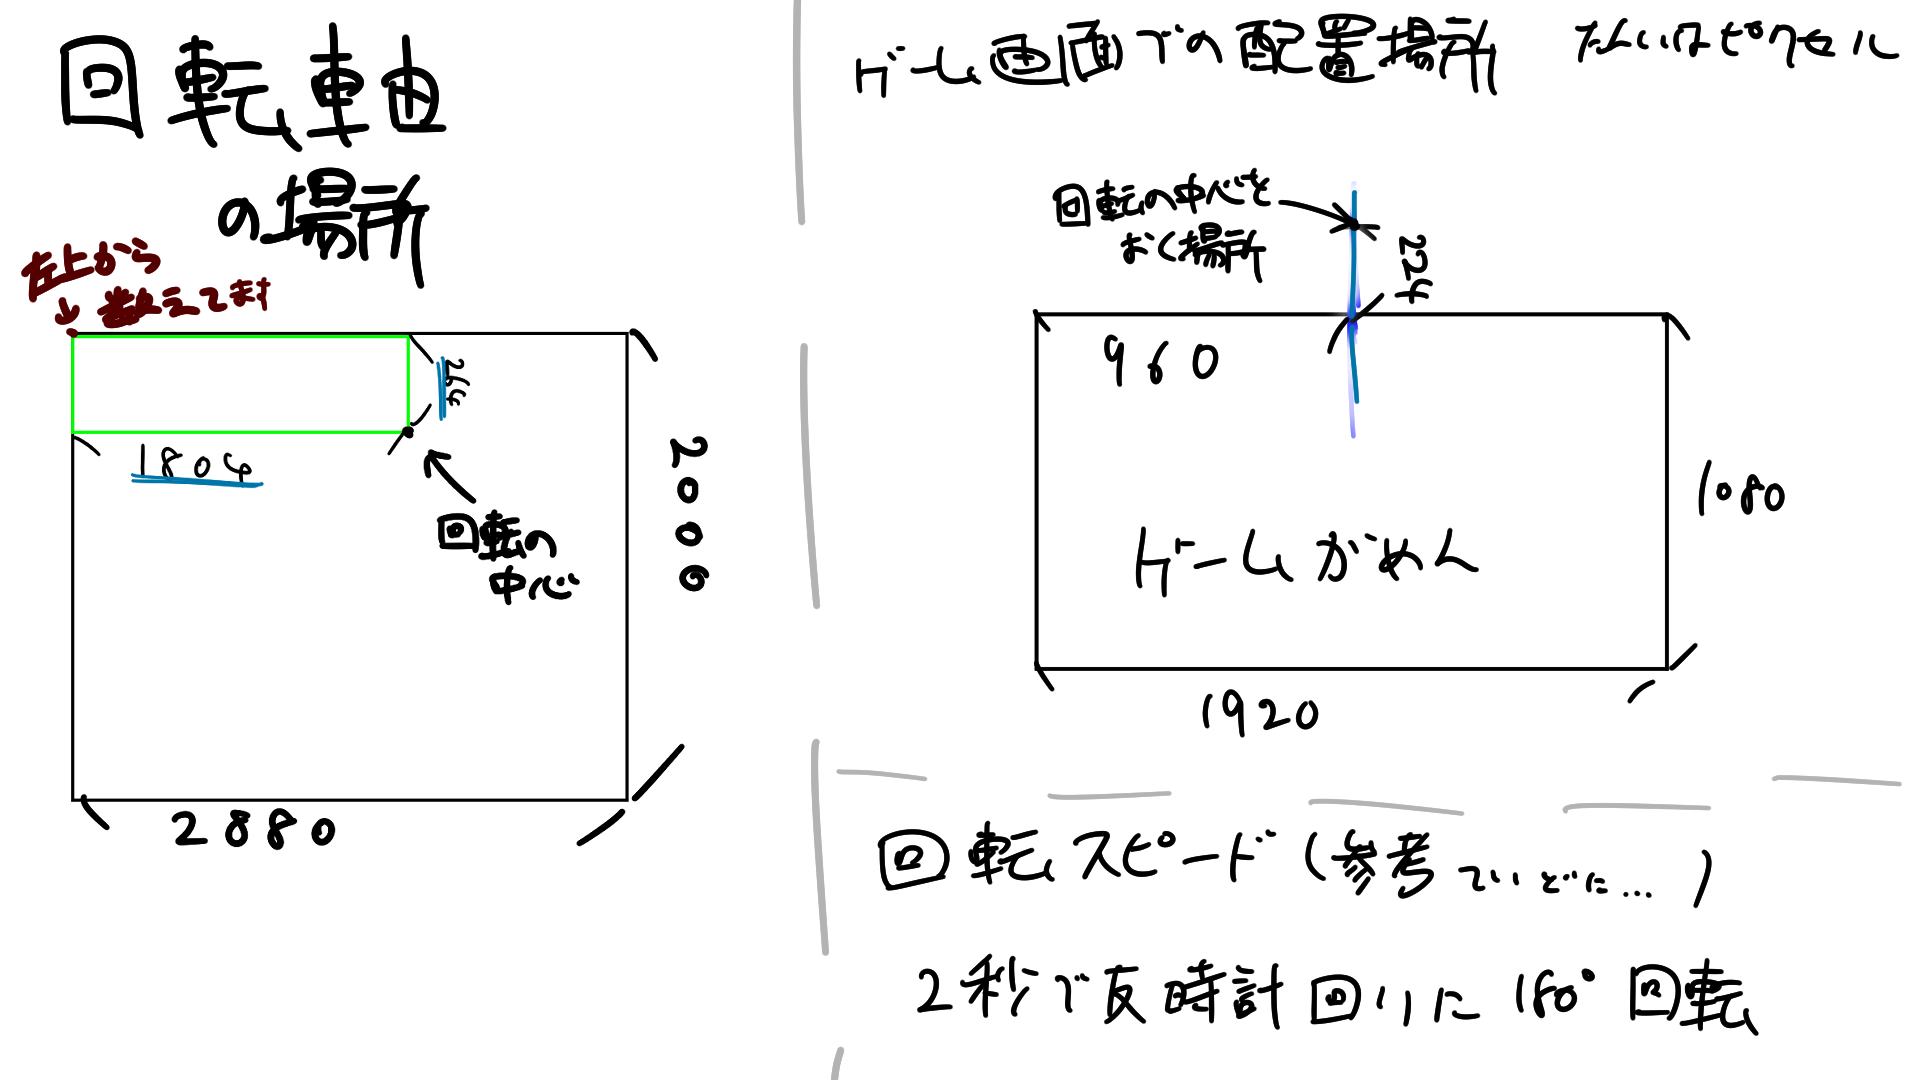 回転軸
の場所
左上から
↓数えてます
264
1804
回転の
中心
2000
2880
ゲーム画面での配置場所 たんいはピクセル
回転の中心を
おく場所
224
960
1080
ゲームがめん
1920
回転スピード(参考ていどに...)
2秒で反時計回りに180°回転